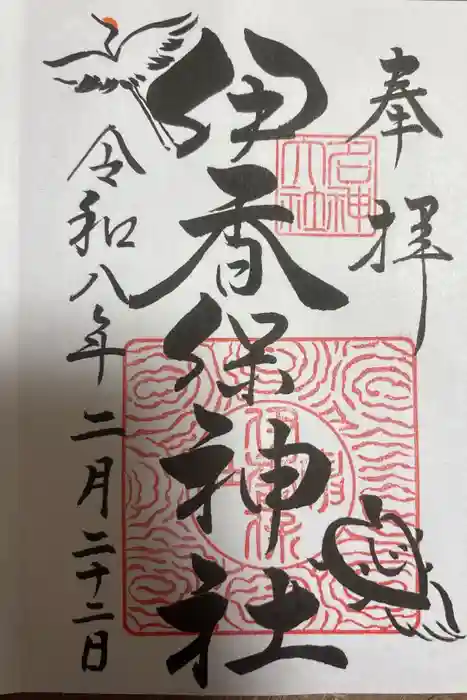 奉拝
名神大社
伊香保神社
令和八年二月二十二日